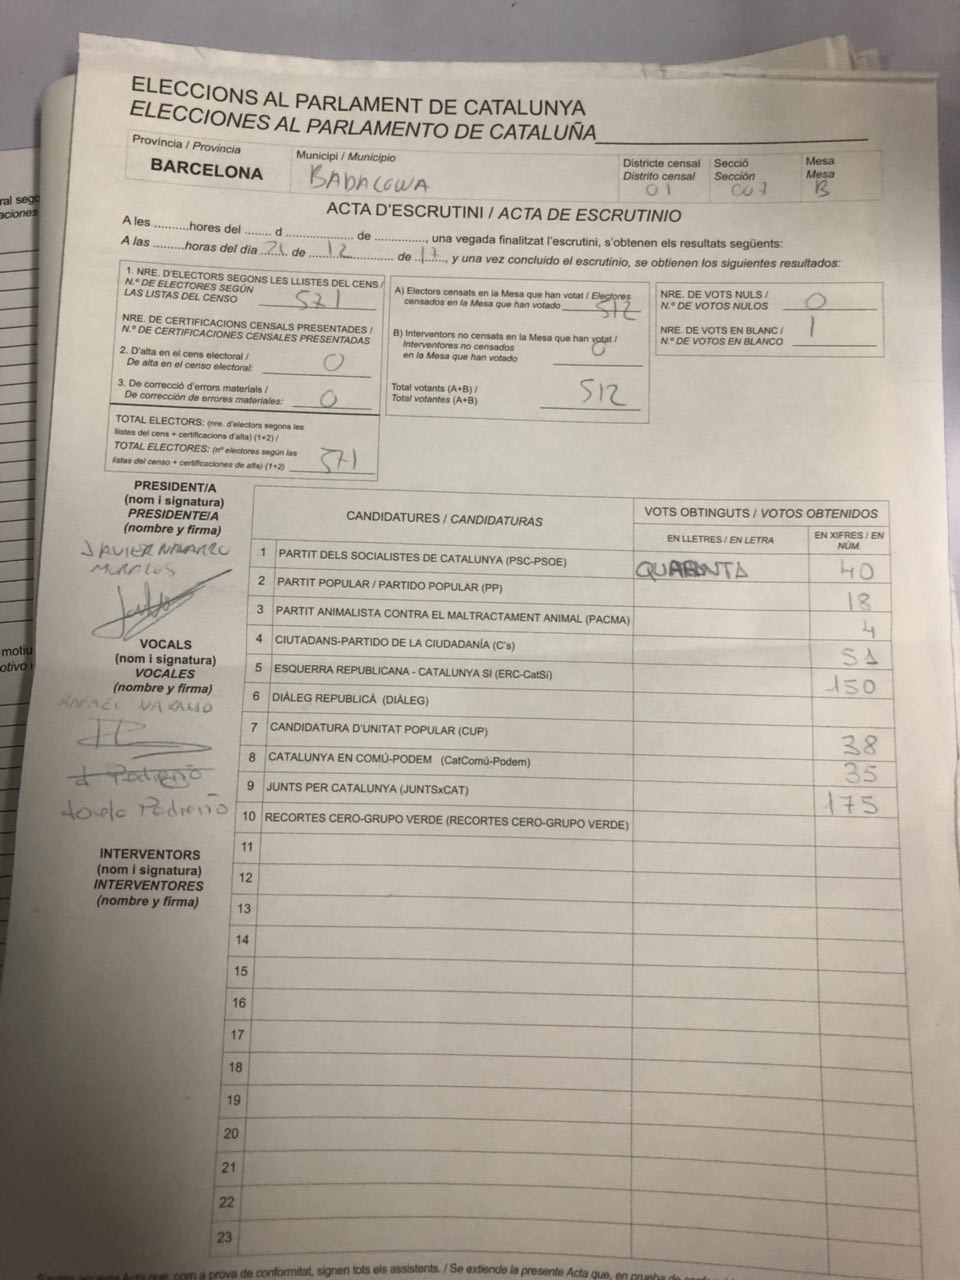 ELECCIONS AL PARLAMENT DE CATALUNYA
ELECCIONES AL PARLAMENTO DE CATALUÑA
Província / Provincia
BARCELONA
Municipi / Municipio
BADALONA
Districte censal
Distrito censal
01
Secció
Sección
007
Mesa
Mesa
B
ACTA D'ESCRUTINI / ACTA DE ESCRUTINIO
A les ..........hores del ........ d .................... de ..............., una vegada finalitzat l'escrutini, s'obtenen els resultats següents:
A las .........horas del día 21 de 12 de 17, y una vez concluido el escrutinio, se obtienen los siguientes resultados:
1. NRE. D'ELECTORS SEGONS LES LLISTES DEL CENS /
N.º DE ELECTORES SEGÚN
LAS LISTAS DEL CENSO 571
NRE. DE CERTIFICACIONS CENSALS PRESENTADES /
N.º DE CERTIFICACIONES CENSALES PRESENTADAS
2. D'alta en el cens electoral /
De alta en el censo electoral: 0
3. De correcció d'errors materials /
De corrección de errores materiales: 0
TOTAL ELECTORS: (nre. d'electors segons les
llistes del cens + certificacions d'alta) (1+2) /
TOTAL ELECTORES: (nº electores según las
listas del censo + certificaciones de alta) (1+2) 571
A) Electors censats en la Mesa que han votat / Electores
censados en la Mesa que han votado 512
B) Interventors no censats en la Mesa que han votat /
Interventores no censados
en la Mesa que han votado 0
Total votants (A+B) /
Total votantes (A+B) 512
NRE. DE VOTS NULS /
N.º DE VOTOS NULOS 0
NRE. DE VOTS EN BLANC /
N.º DE VOTOS EN BLANCO 1
PRESIDENT/A
(nom i signatura)
PRESIDENTE/A
(nombre y firma)
JAVIER NAVARRO
MORALES
VOCALS
(nom i signatura)
VOCALES
(nombre y firma)
RAFAEL
Pedreño
Pedreño
INTERVENTORS
(nom i signatura)
INTERVENTORES
(nombre y firma)
CANDIDATURES / CANDIDATURAS
VOTS OBTINGUTS / VOTOS OBTENIDOS
EN LLETRES / EN LETRA
EN XIFRES / EN
NÚM.
1 PARTIT DELS SOCIALISTES DE CATALUNYA (PSC-PSOE) QUARANTA 40
2 PARTIT POPULAR / PARTIDO POPULAR (PP) 18
3 PARTIT ANIMALISTA CONTRA EL MALTRACTAMENT ANIMAL (PACMA) 4
4 CIUTADANS-PARTIDO DE LA CIUDADANÍA (C's) 51
5 ESQUERRA REPUBLICANA - CATALUNYA SI (ERC-CatSí) 150
6 DIÀLEG REPUBLICÀ (DIÀLEG)
7 CANDIDATURA D'UNITAT POPULAR (CUP) 38
8 CATALUNYA EN COMÚ-PODEM (CatComú-Podem) 35
9 JUNTS PER CATALUNYA (JUNTSxCAT) 175
10 RECORTES CERO-GRUPO VERDE (RECORTES CERO-GRUPO VERDE)
11
12
13
14
15
16
17
18
19
20
21
22
23
com a prova de conformitat, signen tots els assistents. / Se extiende la presente Acta que, en prueba de